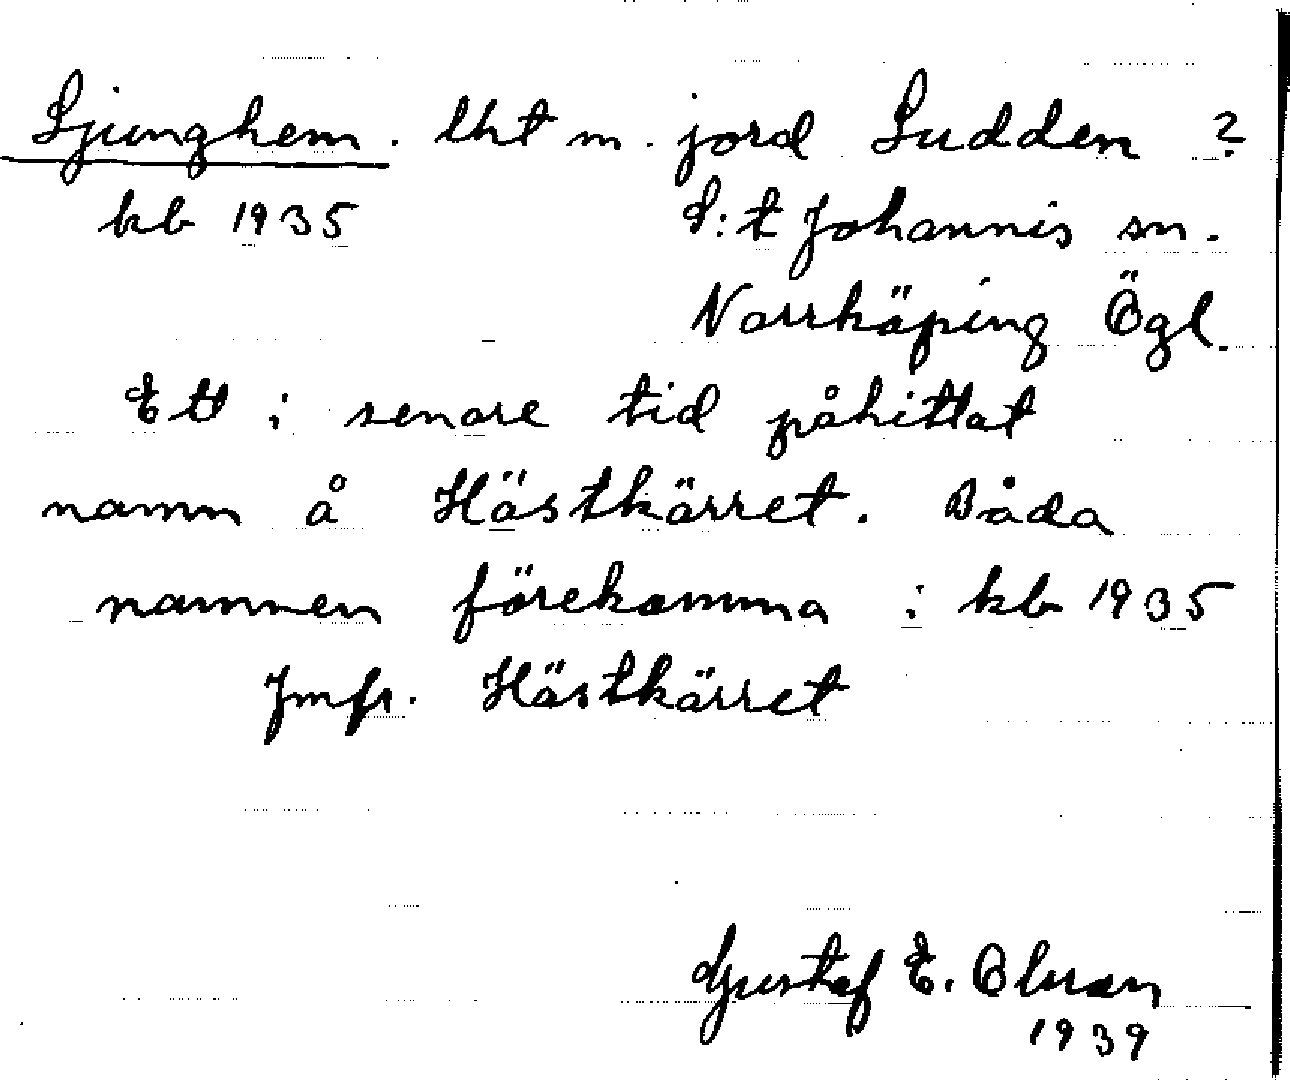 Ljunghem. lht m. jord Sudden ?
kb 1935 S:t Johannis sn.
Norrköping Ögl.
Ett i senare tid påhittat
namn å Hästkärret. Båda
namnen förekomma i kb 1935
Jmfr. Hästkärret
Gustaf E. Olsson
1939